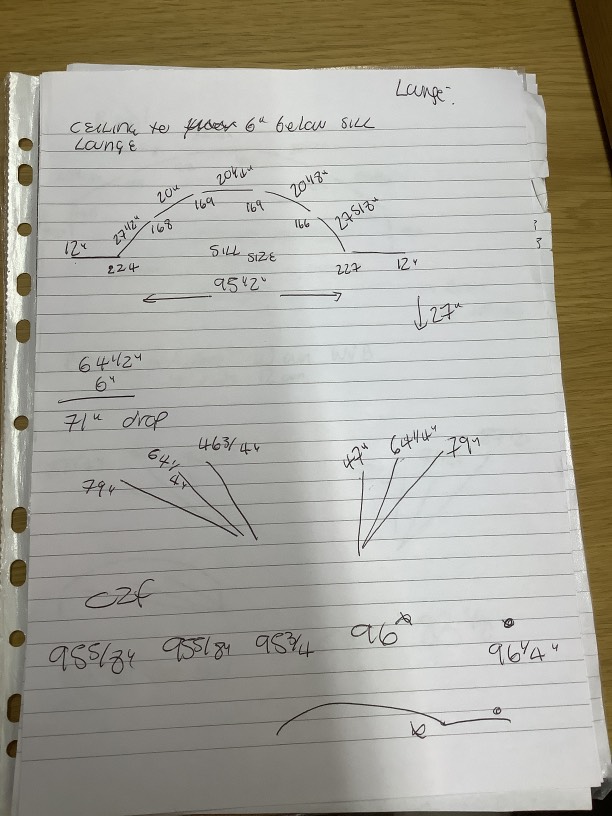 Lounge:
CEILING to floor 6" below SILL
LOUNGE
12" 27 1/2" 20" 20 1/2" 20 4/8" 27 5/8" 12"
224 168 169 169 166 227
SILL SIZE
95 1/2"
↓27"
64 1/2"
6"
71" drop
79" 64 1/4" 46 3/4" 47" 64 1/4" 79"
C2F
95 5/8" 95 5/8" 95 3/4 96 96 1/4"